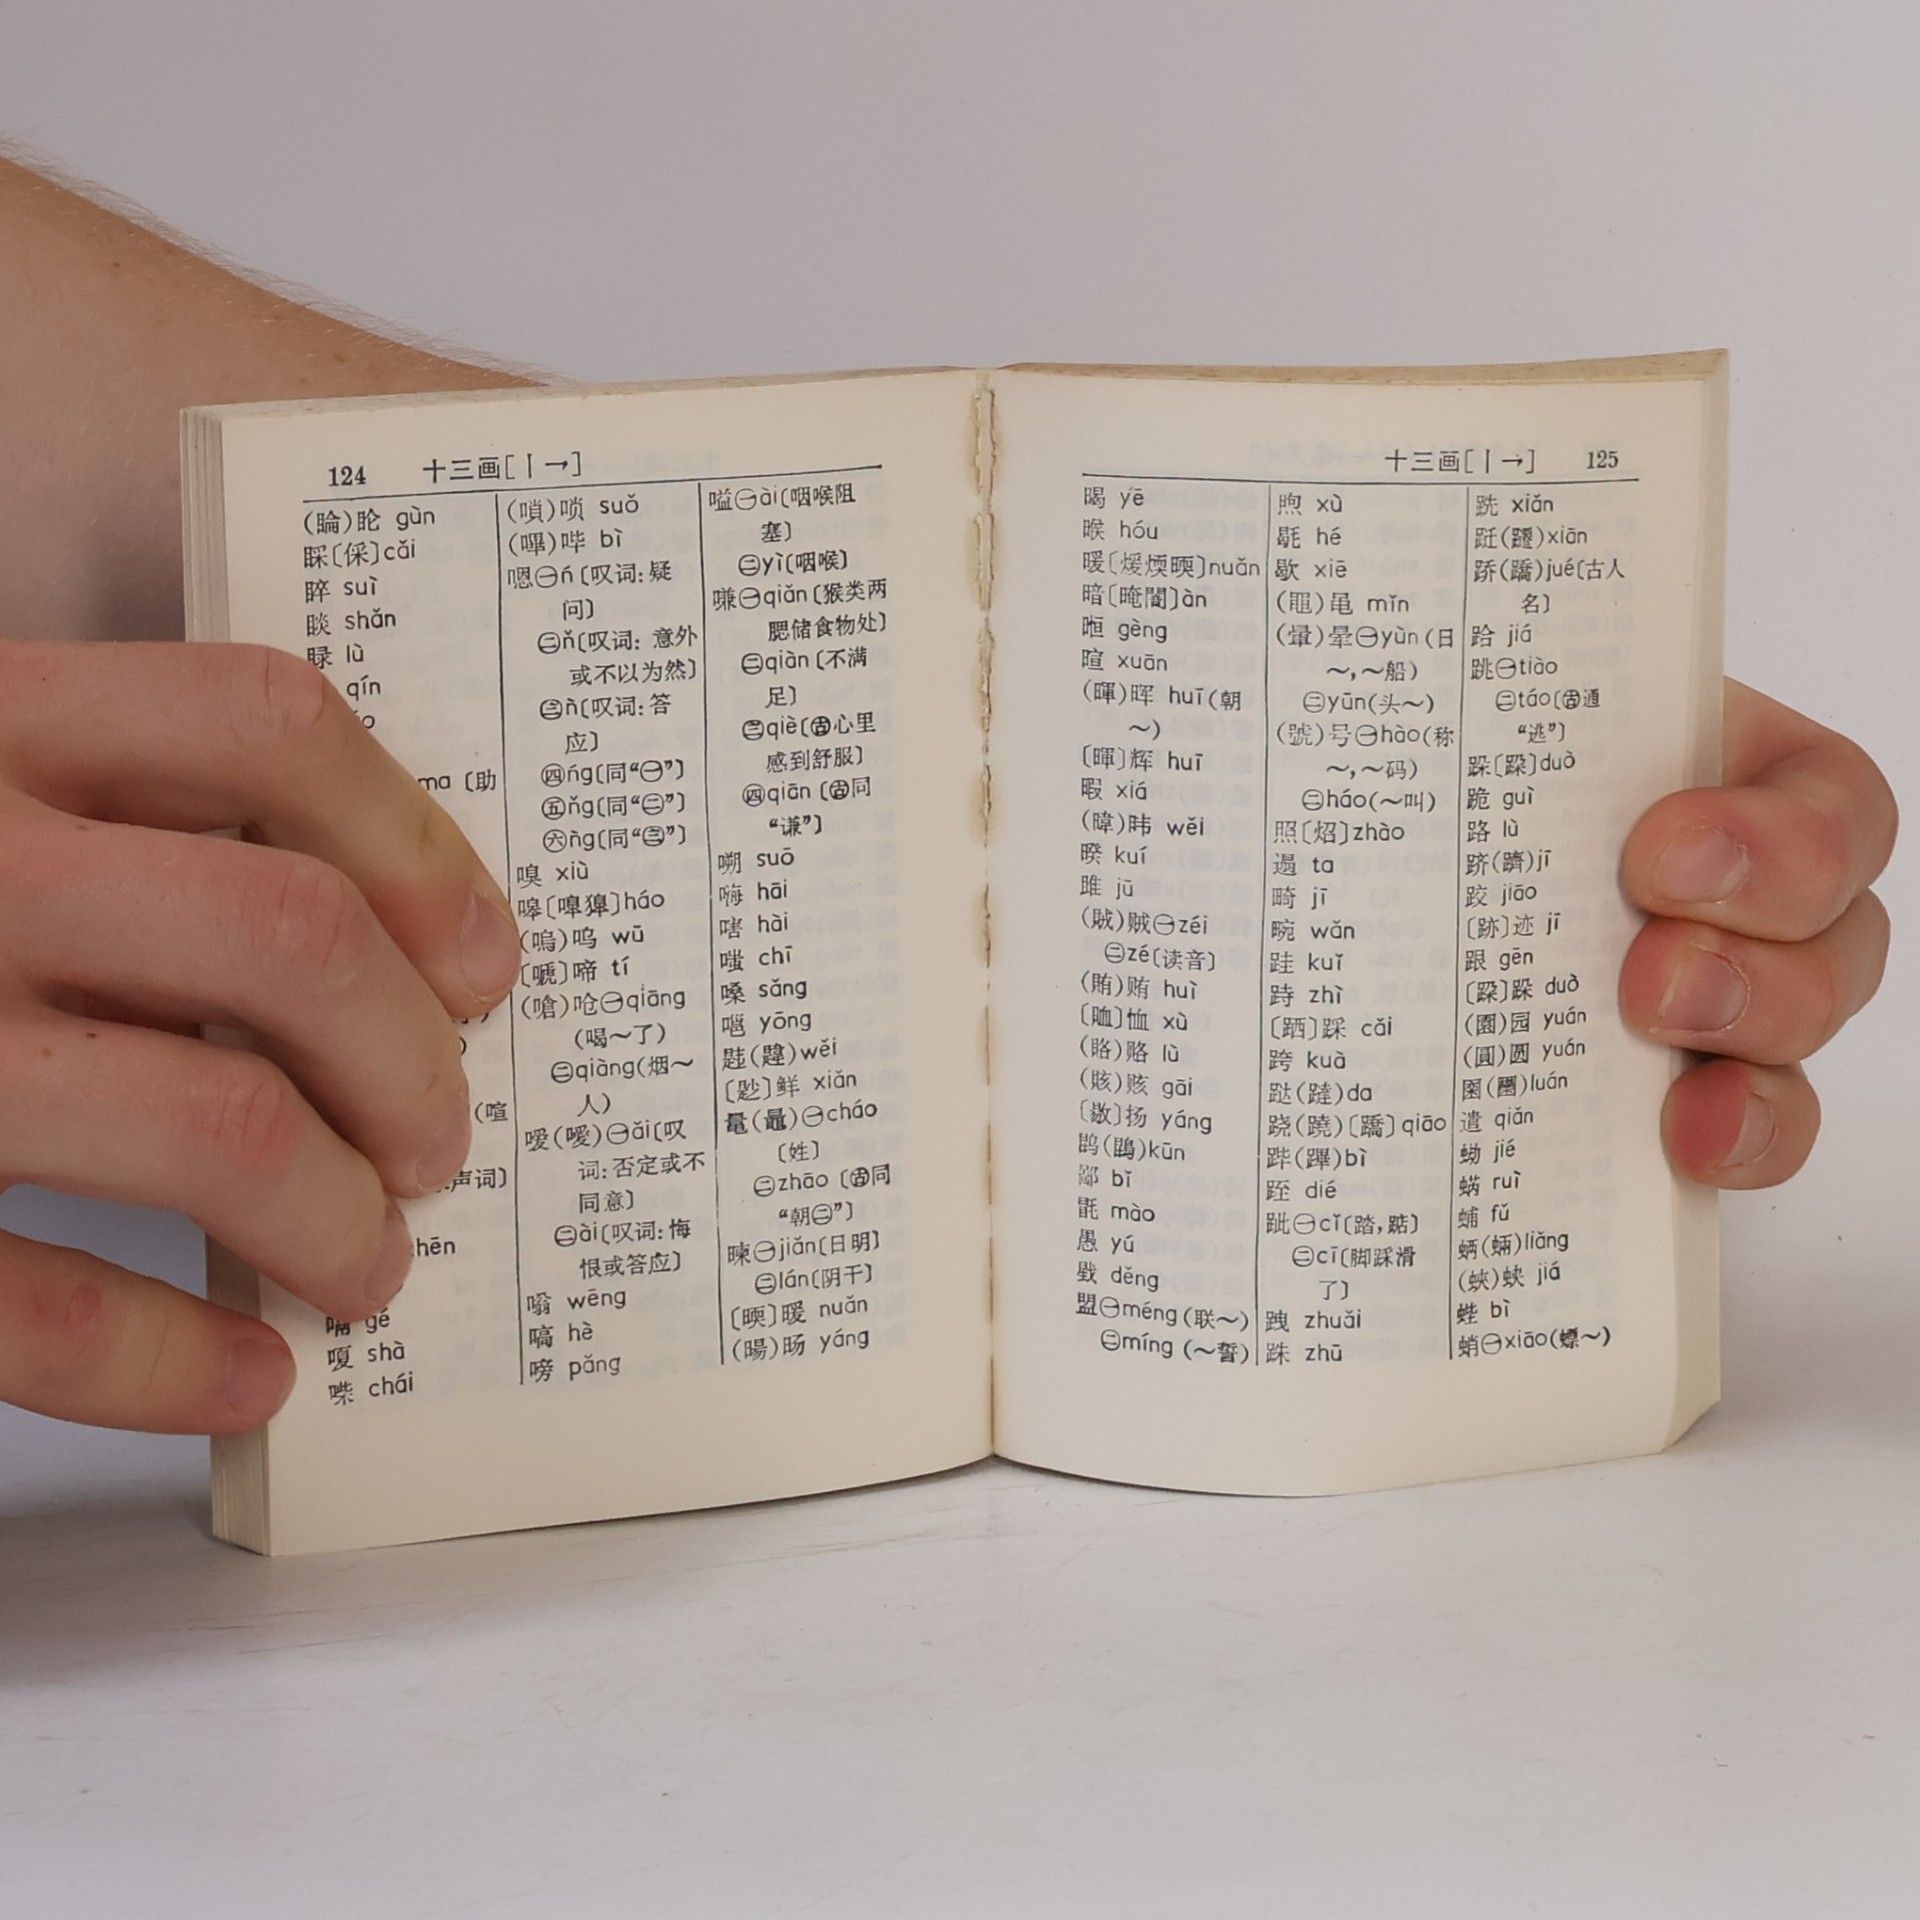 124 十三画[丨→]
(睔)睔 gùn
睬〔倸〕cǎi
睟 suì
睒 shǎn
睩 lù
qín
ma〔助
(喧
声词〕
chēn
嗝 gé
嗄 shà
喍 chái
(嗩)唢 suǒ
(嗶)哔 bì
嗯㊀ń〔叹词:疑
问〕
㊁ň〔叹词: 意外
或不以为然〕
㊂ǹ〔叹词:答
应〕
㊃ńg〔同“㊀”〕
㊄ňg〔同“㊁”〕
㊅ǹg〔同“㊂”〕
嗅 xiù
嗥〔嘷獋〕háo
(嗚)呜 wū
〔嗁〕啼 tí
(嗆)呛㊀qiāng
(喝～了)
㊁qiàng(烟～
人)
嗳(噯)㊀ǎi〔叹
词:否定或不
同意〕
㊁ài〔叹词:悔
恨或答应〕
嗡 wēng
嗃 hè
嗙 pǎng
嗌㊀ài〔咽喉阻
塞〕
㊁yì〔咽喉〕
嗛㊀qiǎn〔猴类两
腮储食物处〕
㊁qiàn〔不满
足〕
㊂qiè〔古心里
感到舒服〕
㊃qiān〔古同
“谦”〕
嗍 suō
嗨 hāi
嗐 hài
嗤 chī
嗓 sǎng
嗈 yōng
韪(韙)wěi
〔尟〕鲜 xiǎn
鼌(鼂)㊀cháo
〔姓〕
㊁zhāo〔古同
“朝㊁”〕
暕㊀jiǎn〔日明〕
㊁lán〔阴干〕
〔暝〕暖 nuǎn
(暘)旸 yáng
十三画[丨→] 125
暍 yē
睺 hóu
暖〔煖煗㬉〕nuǎn
暗〔晻闇〕àn
暅 gèng
暄 xuān
(暉)晖 huī(朝
～)
〔暉〕辉 huī
暇 xiá
(暐)㬙 wěi
暌 kuí
雎 jū
(賊)贼㊀zéi
㊁zé〔读音〕
(賄)贿 huì
〔賉〕恤 xù
(賂)赂 lù
(賅)赅 gāi
〔敭〕扬 yáng
鹍(鵾)kūn
鄙 bǐ
毷 mào
愚 yú
戥 děng
盟㊀méng(联～)
㊁míng (～誓)
煦 xù
毼 hé
歇 xiē
(黽)黾 mǐn
(暈)晕㊀yùn(日
～,～船)
㊁yūn(头～)
(號)号㊀hào(称
～,～码)
㊁háo(～叫)
照〔炤〕zhào
遢 ta
畸 jī
畹 wǎn
跬 kuǐ
跱 zhì
〔跴〕踩 cǎi
跨 kuà
跶(躂)da
跷(蹺)〔蹻〕qiāo
跸(蹕)bì
跮 dié
跐㊀cǐ〔踏,踮〕
㊁cī〔脚踩滑
了〕
跩 zhuǎi
跦 zhū
跣 xiǎn
跹(躚)xiān
𫏋(蹻)jué〔古人
名〕
跲 jiá
跳㊀tiào
㊁táo〔古通
“逃”〕
跺〔跥〕duò
跪 guì
路 lù
跻(躋)jī
跤 jiāo
〔跡〕迹 jī
跟 gēn
〔跥〕跺 duò
(園)园 yuán
(圓)圆 yuán
圝(圞)luán
遣 qiǎn
蛣 jié
蜹 ruì
蜅 fǔ
䗀(蜽)liǎng
(蛺)蛱 jiá
蜌 bì
蛸㊀xiāo(螵～)